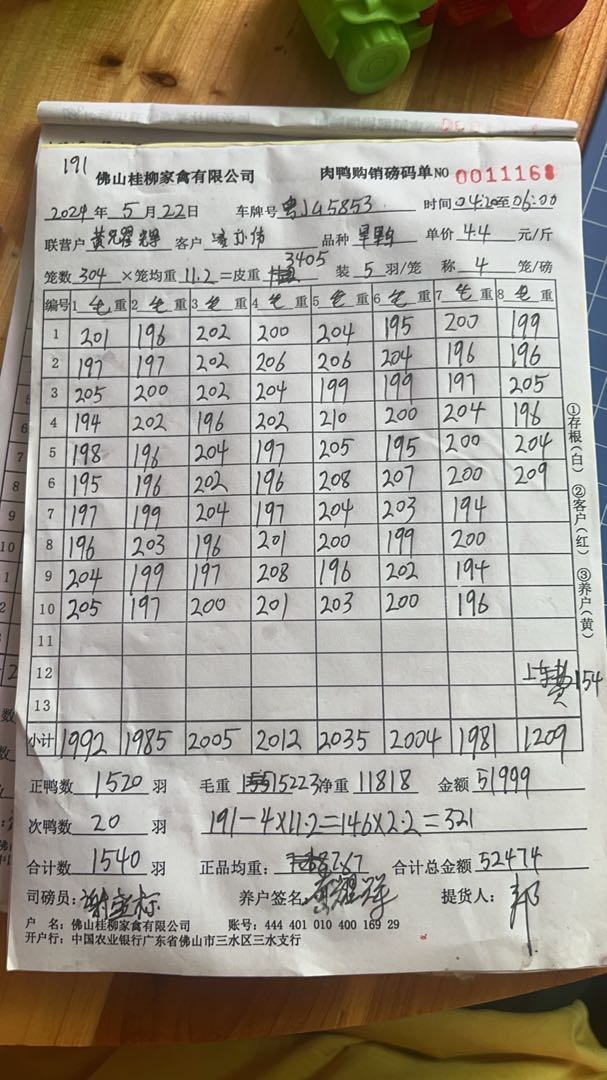 191
佛山桂柳家禽有限公司 肉鸭购销磅码单NO 0011168
2024年5月22日 车牌号 粤JG5853 时间04:20至06:00
联营户 黄 客户 品种 单价 4.4 元/斤
3405
笼数 304 ×笼均重 11.2 =皮重 装 5 羽/笼 称 4 笼/磅
编号 1 毛重 2 毛重 3 毛重 4 毛重 5 毛重 6 毛重 7 毛重 8 毛重
1 201 196 202 200 204 195 200 199
2 197 197 202 206 206 204 196 196
3 205 200 202 204 199 199 197 205
4 194 202 196 202 210 200 204 196
5 198 196 204 197 205 195 200 204
6 195 196 202 196 208 207 200 209
7 197 199 204 197 204 203 194
8 196 203 196 201 200 199 200
9 204 199 197 208 196 202 194
10 205 197 200 201 203 200 196
11
12 上车费154
13
小计 1992 1985 2005 2012 2035 2004 1981 1209
正鸭数 1520 羽 毛重 15223 净重 11818 金额 51999
次鸭数 20 羽 191-4×11.2=146×2.2=321
合计数 1540 羽 正品均重: 7.67 合计总金额 52474
司磅员: 谢 标 养户签名: 黄耀祥 提货人: 邦
户 名: 佛山桂柳家禽有限公司 账号: 444 401 010 400 169 29
开户行: 中国农业银行广东省佛山市三水区三水支行
①存根(白) ②客户(红) ③养户(黄)